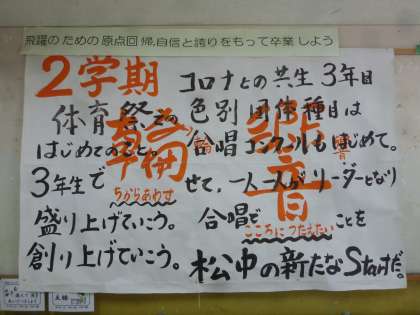 飛躍のための原点回帰,自信と誇りをもって卒業しよう
2学期 コロナとの共生3年目
体育祭での色別団体種目は
はじめてのこと。合唱コンクールもはじめて。
3年生でちからあわせせて、一人一人がリーダーとなり
盛り上げていこう。合唱でこころにつたえたいことを
創り上げていこう。松中の新たなStartだ。